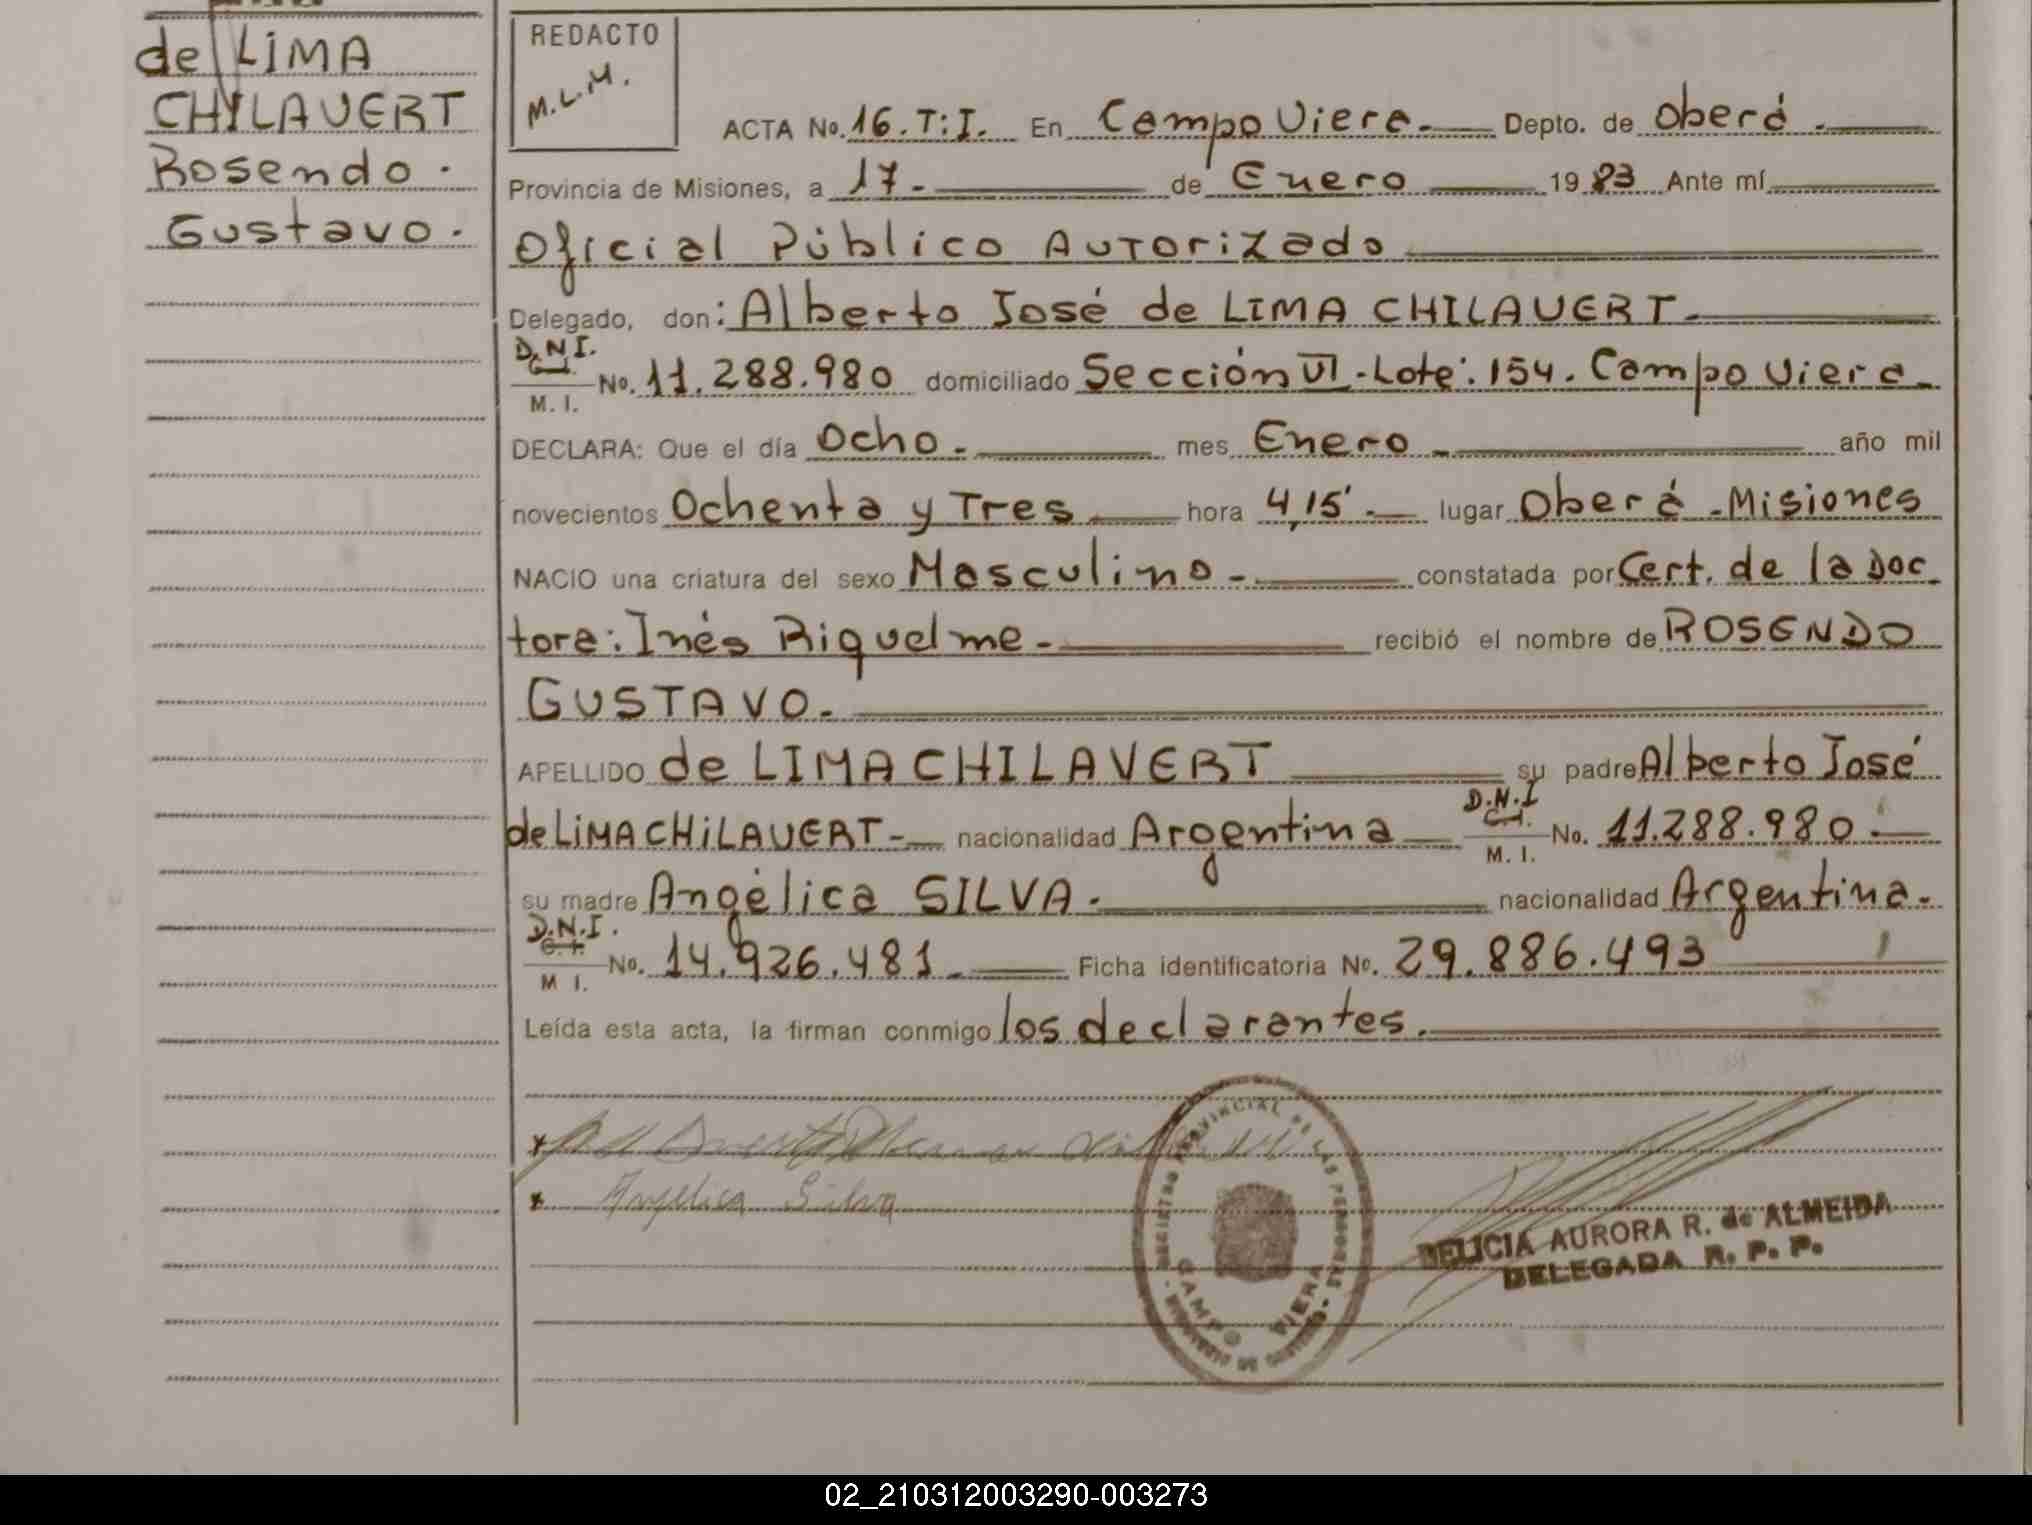 de LIMA
CHILAVERT
Rosendo.
Gustavo.
REDACTO
M.L.M.
ACTA No. 16. T:I. En Campo Viera. Depto. de Oberá.
Provincia de Misiones, a 17- de Enero 1983 Ante mí
Oficial Público Autorizado
Delegado, don: Alberto José de LIMA CHILAVERT.
D.N.I.
C.I.
M. I.
No. 11.288.980 domiciliado Sección VI-Lote: 154. Campo Viera.
DECLARA: Que el día Ocho. mes Enero. año mil
novecientos Ochenta y Tres hora 4,15'. lugar Oberá - Misiones
NACIO una criatura del sexo Masculino- constatada por Cert. de la Doc
tora: Inés Riquelme- recibió el nombre de ROSENDO
GUSTAVO.
APELLIDO de LIMA CHILAVERT su padre Alberto José
de LIMA CHILAVERT- nacionalidad Argentina
D.N.I
C.I.
M. I.
No. 11.288.980.
su madre Angélica SILVA. nacionalidad Argentina.
D.N.I.
C.I.
M I.
No. 14.926.481. Ficha identificatoria No. 29.886.493
Leída esta acta, la firman conmigo los declarantes.
x
x Angelica Silva
REGISTRO PROVINCIAL DE LAS PERSONAS
CAMPO VIERA
DELICIA AURORA R. de ALMEIDA
DELEGADA R. P. P.
02_210312003290-003273